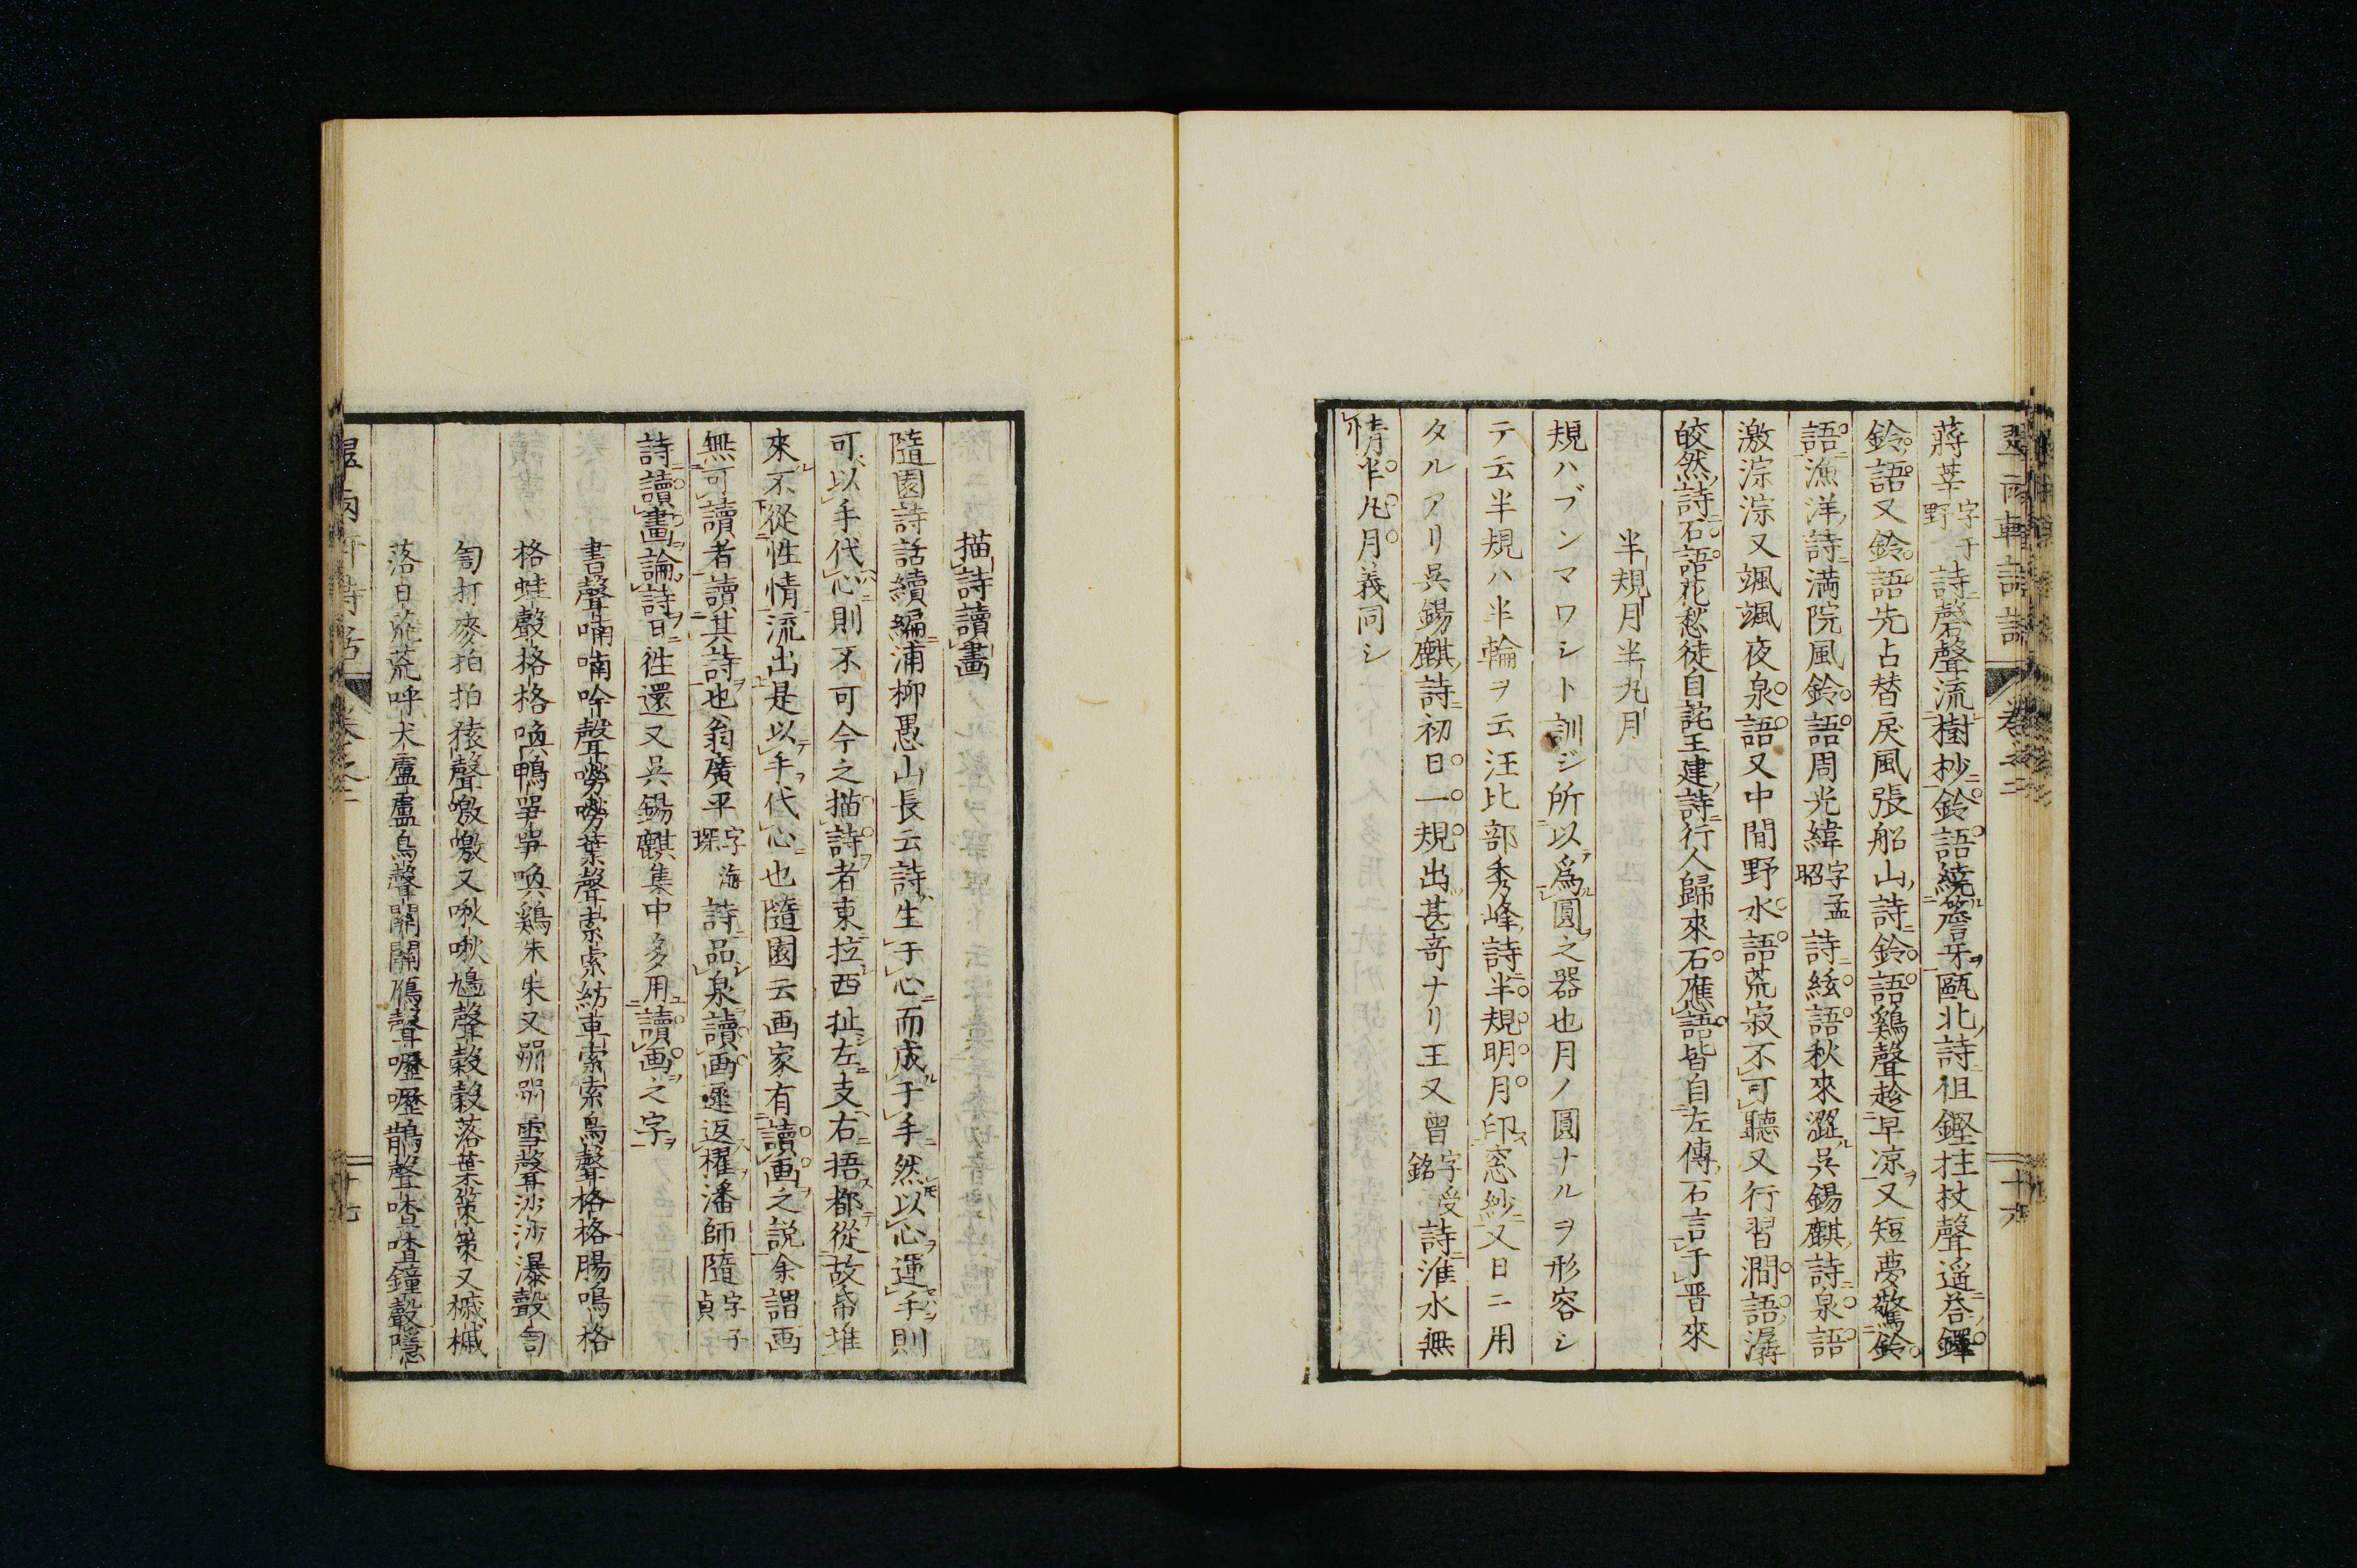 蔣莘字于野詩磬聲流樹抄鈴語繞簷牙甌北詩徂鏗拄杖聲遥荅鐸
鈴語又鈴語先占替戾風張船山詩鈴語鷄聲趁早凉又短夢驚鈴
語漁洋詩満院風鈴語周光緯字孟昭詩絃語秋來澀呉錫麒詩泉語
激淙淙又颯颯夜泉語又中間野水語荒寂不可聽又行習澗語潺
皎然詩石語花愁徒自詫王建詩行人歸來石應語皆自左傳石言于晋來
半規月半丸月
規ハブンマワシト訓ジ所以爲圓之器也月ノ圓ナルヲ形容シ
テ云半規ハ半輪ヲ云汪比部秀峰詩半規明月印窓紗又日ニ用
タルアリ呉錫麒詩初日一規出甚竒ナリ王又曾字受銘詩淮水無
情半丸月義同シ
描詩讀畫
隨園詩話續編浦柳愚山長云詩生于心而成于手然以心運手則
可以手代心則不可今之描詩者東拉西扯左支右捂都從故帋堆
來不從性情流出是以手代心也隨園云画家有讀画之説余謂画
無可讀者讀其詩也翁廣平字海琛詩品泉讀画遲返櫂潘師隨字子貞
詩讀畫論詩日徃還又呉錫麒集中多用讀画之字
書聲喃喃吟聲嘮嘮葉聲索索紡車索索鳥聲格格腸鳴格
格蛙聲格格喚鴨㗊㗊喚鷄朱朱又喌喌雪聲沙沙瀑聲訇
訇打麥拍拍猿聲噭噭又啾啾鳩聲榖榖落葉策策又槭槭
落日荒荒呼犬盧盧鳥聲關關鴈聲嚦嚦鵲聲喳喳鐘聲隱